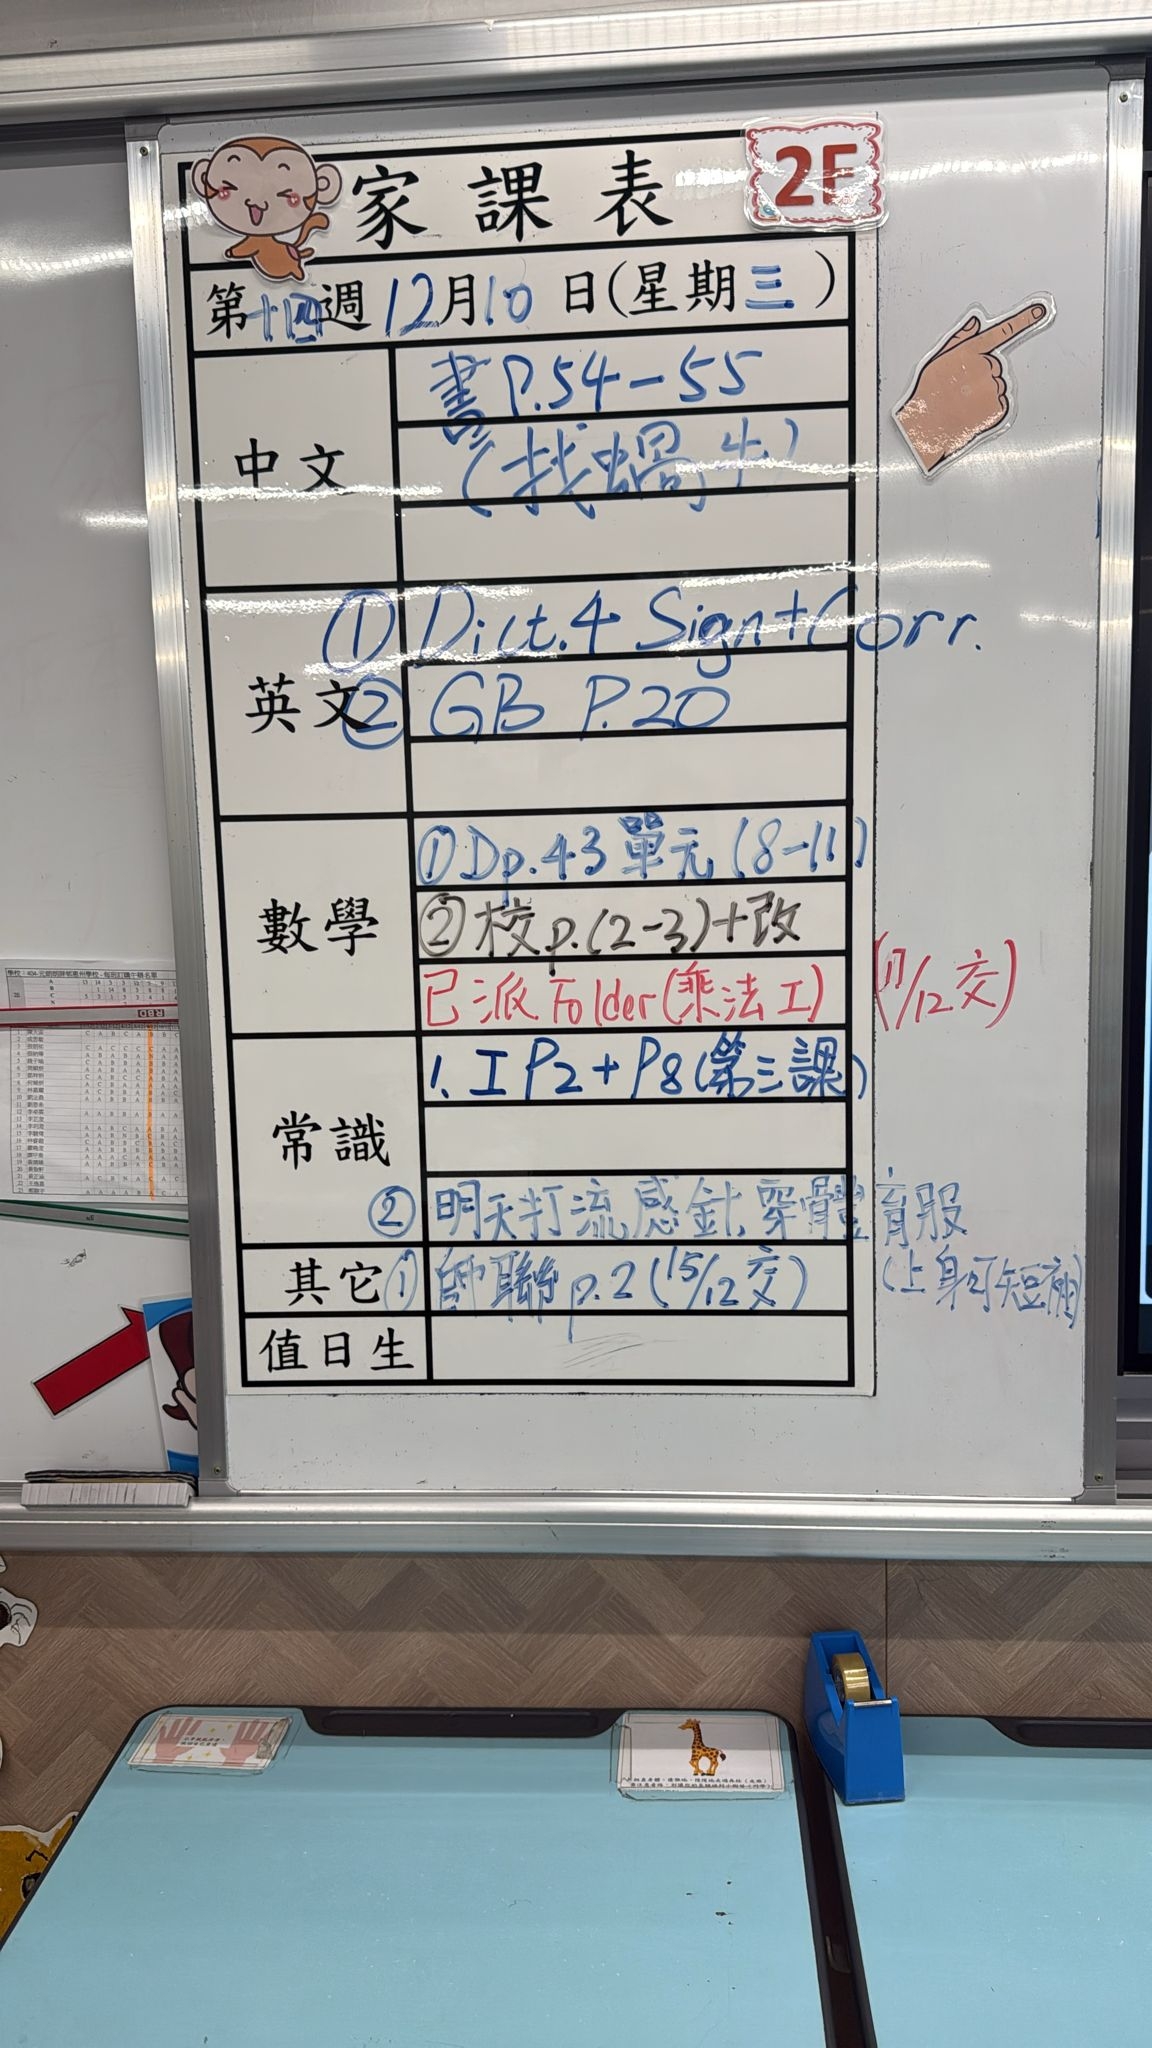 家課表
2F
第十四週 12月10日(星期三)
中文
書 P.54-55
(找蝸牛)
英文
① Dict.4 Sign+Corr.
② GB P.20
數學
① Dp.43 單元(8-11)
② 校p.(2-3)+改
已派 Folder(乘法I) (17/12交)
常識
1. I P2+P8(第三課)
② 明天打流感針,穿體育服
(上身可短袖)
其它
① 師聯p.2(15/12交)
值日生